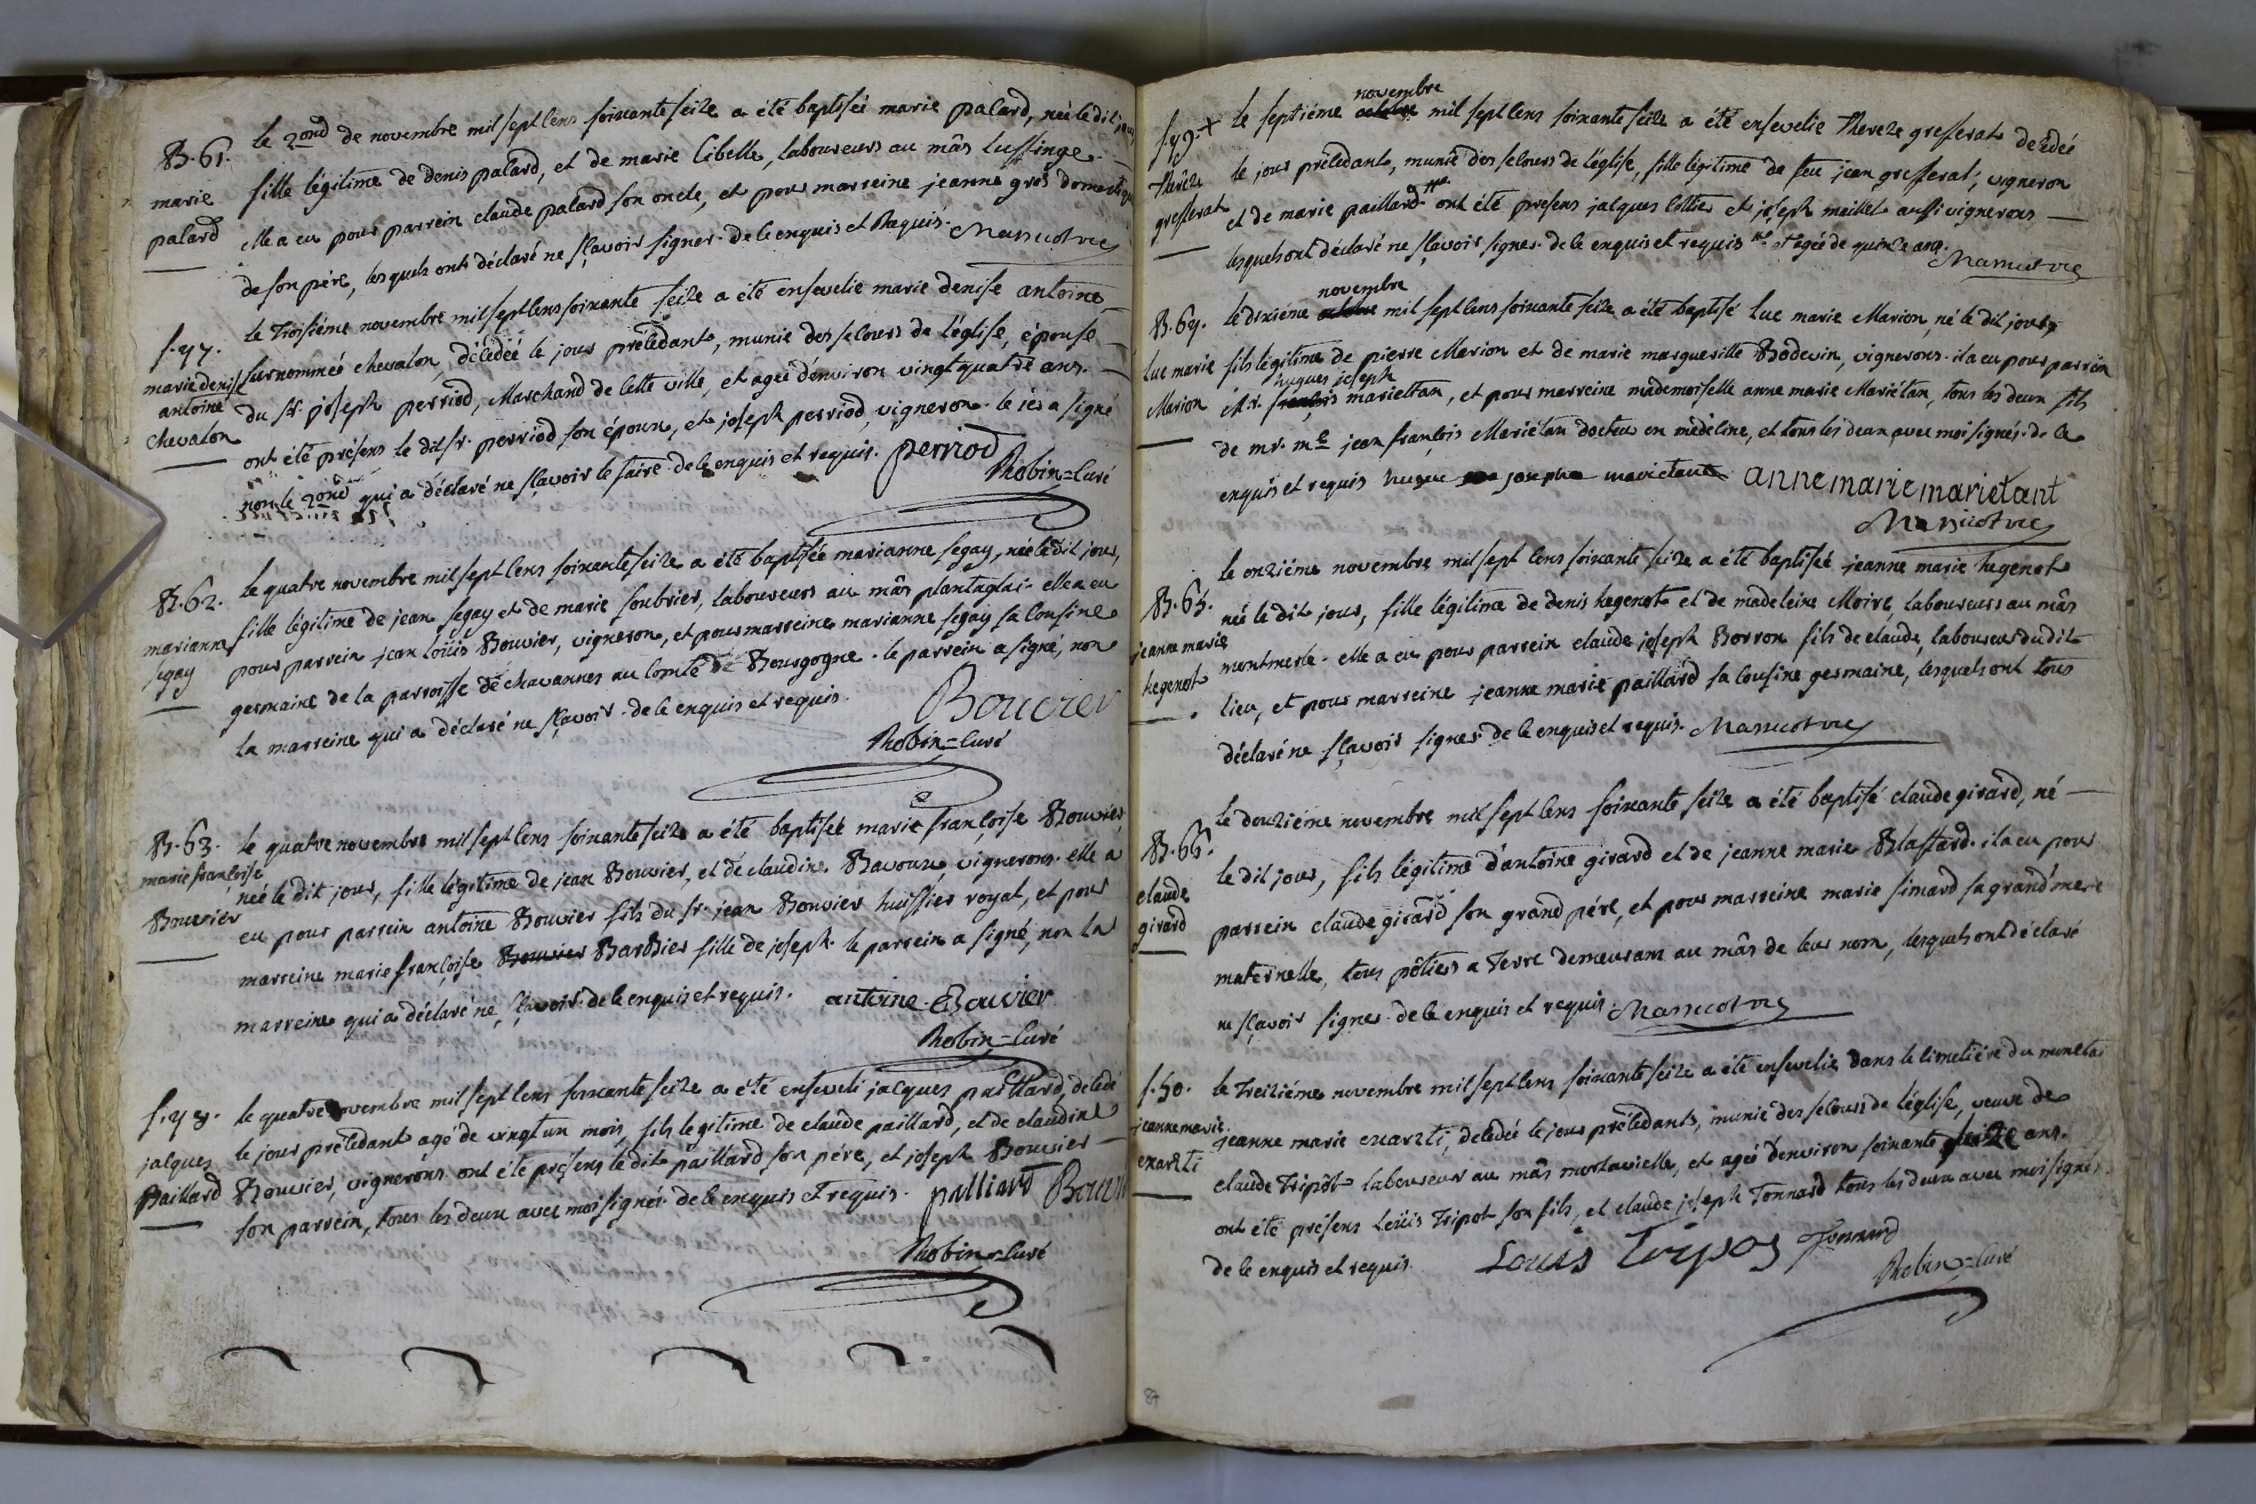 B. 61.
marie
palard
le 2ond de novembre mil sept cens soixante seize a été baptisée marie palard, née le dit jour
fille légitime de denis palard, et de marie Cibelle, laboureurs au mâs lussinge.
elle a eu pour parrein claude palard son oncle, et pour marreine jeanne gros domestique
de son pére, lesquels ont déclaré ne sçavoir signer. de ce enquis et Requis.
s. 47.
marie denise
antoine
chevalon
le Troisiéme novembre mil sept cens soixante seize a été ensevelie marie denise antoine
surnommée chevalon, décédée le jour précédant, munie des secours de l'église, épouse
du sr. joseph perriod, Marchand de cette ville, et agée d'environ vingt quatre ans.
ont été présens le dit sr. perriod son époux, et joseph perriod, vigneron. le 1er a signé
non le 2ond qui a déclaré ne sçavoir le faire. de ce enquis et requis. perriod
Robin = Curé
B. 62.
marianne
segay
le quatre novembre mil sept cens soixante seize a été baptisée marianne segay, née le dit jour,
fille légitime de jean segay et de marie soubrier, laboureurs au mâs plantaglai. elle a eu
pour parrein jean loüis Bouvier, vigneron, et pour marreine marianne segay sa cousine
germaine de la parroisse de chavannes au comté de Bourgogne. le parrein a signé, non
la marreine qui a déclaré ne sçavoir. de ce enquis et requis. Bouvier
Robin = Curé
B. 63.
marie françoise
Bouvier
le quatre novembre mil sept cens soixante seize a été baptisée marie françoise Bouvier,
née le dit jour, fille légitime de jean Bouvier, et de claudine Bavoux, vignerons. elle a
eu pour parrein antoine Bouvier fils du sr. jean Bouvier huissier royal, et pour
marreine marie françoise Bouvier Barbier fille de joseph. le parrein a signé, non la
marreine qui a déclaré ne sçavoir. de ce enquis et requis. antoine Bouvier
Robin = Curé
s. 48.
jacques
Paillard
le quatre novembre mil sept cens soixante seize a été enseveli jacques paillard, décédé
le jour précédant agé de vingt un mois, fils legitime de claude paillard, et de claudine
Bouvier, vignerons. ont été présens le dit paillard son pére, et joseph Bouvier
son parrein, tous les deux avec moi signés. de ce enquis et requis. palliard Bouvier
Robin = Curé
s. 49. +
thérèze
gresserat
novembre
le septiéme octobre mil sept cens soixante seize a été ensevelie thereze gresserat décédée
le jour précédant, munie des secours de l'église, fille légitime de feu jean gresserat, vigneron
et de marie paillard ont été presens jacques Cottier et joseph maillet aussi vignerons
lesquels ont déclaré ne sçavoir signer. de ce enquis et requis et agée de quinze ans.
B. 64.
luc marie
Marion
novembre
le dixiéme octobre mil sept cens soixante seize a été baptisé luc marie Marion, né le dit jour,
fils légitime de pierre Marion et de marie marguerille Bodevin, vignerons. il a eu pour parrein
hugues joseph
Mr. françois marietan, et pour marreine mademoiselle anne marie Mariétan, tous les deux fils
de mr. me jean françois Mariétan docteur en médecine, et tous les deux avec moi signés. de ce
enquis et requis hugue josephe marietant anne marie mariétant
B. 65.
jeanne marie
hegenot
le onziéme novembre mil sept cens soixante seize a été baptisée jeanne marie hegenot
née le dit jour, fille légitime de denis hegenot et de madeleine Moire, laboureurs au mâs
montmerle. elle a eu pour parrein claude joseph Borron fils de claude, laboureur du dit
lieu, et pour marreine jeanne marie paillard sa cousine germaine, lesquels ont tous
déclaré ne sçavoir signer. de ce enquis et requis.
B. 66.
claude
girard
le douziéme novembre mil sept cens soixante seize a été baptisé claude girard, né
le dit jour, fils légitime d'antoine girard et de jeanne marie Blattard. il a eu pour
parrein claude girard son grand pére, et pour marreine marie simard sa grand'mere
maternelle, tous pôtiers a Terre demeurans au mâs de leur nom, lesquels ont déclaré
ne sçavoir signer. de ce enquis et requis.
s. 50.
jeanne marie
exarzti
le treiziéme novembre mil sept cens soixante seize a été ensevelie dans le cimetiére du
jeanne marie exarzti, décédée le jour précédant, munie des secours de l'église, veuve de
claude Tripôt laboureur au mâs, et agée d'environ soixante seize ans.
ont été présens Loüis Tripot son fils, et claude joseph Tonnard tous les deux avec moi signés.
de ce enquis et requis. Louis Tripos Tonnard
Robin = Curé
84